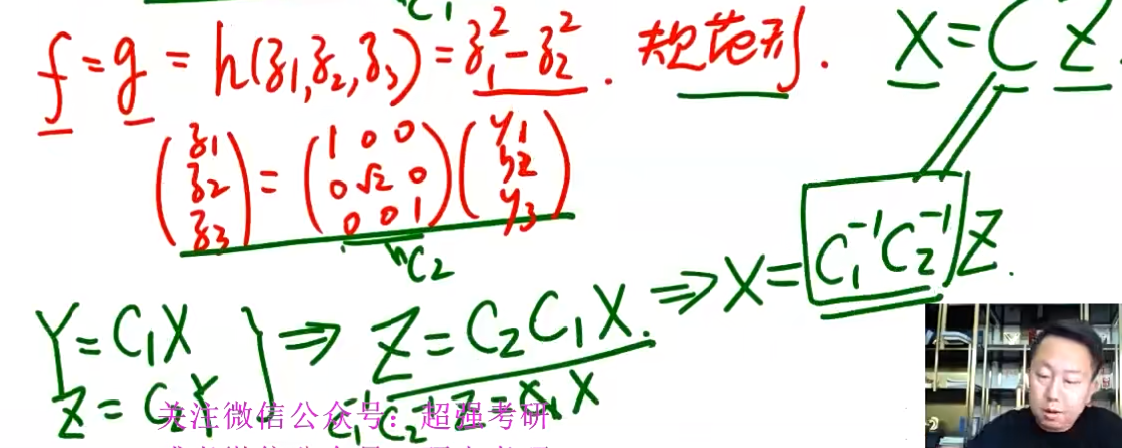 C₁
f = g = h(z₁, z₂, z₃) = z₁² - z₂². 规范形.
X = C Z.
(z₁ z₂ z₃) = (1 0 0 0 √2 0 0 0 1) (y₁ y₂ y₃)
C₂
Y = C₁X
Z = C₂Y
⇒ Z = C₂C₁X. ⇒ X = C₁⁻¹C₂⁻¹ Z.
C₁⁻¹C₂⁻¹Z = X
关注微信公众号：超强考研